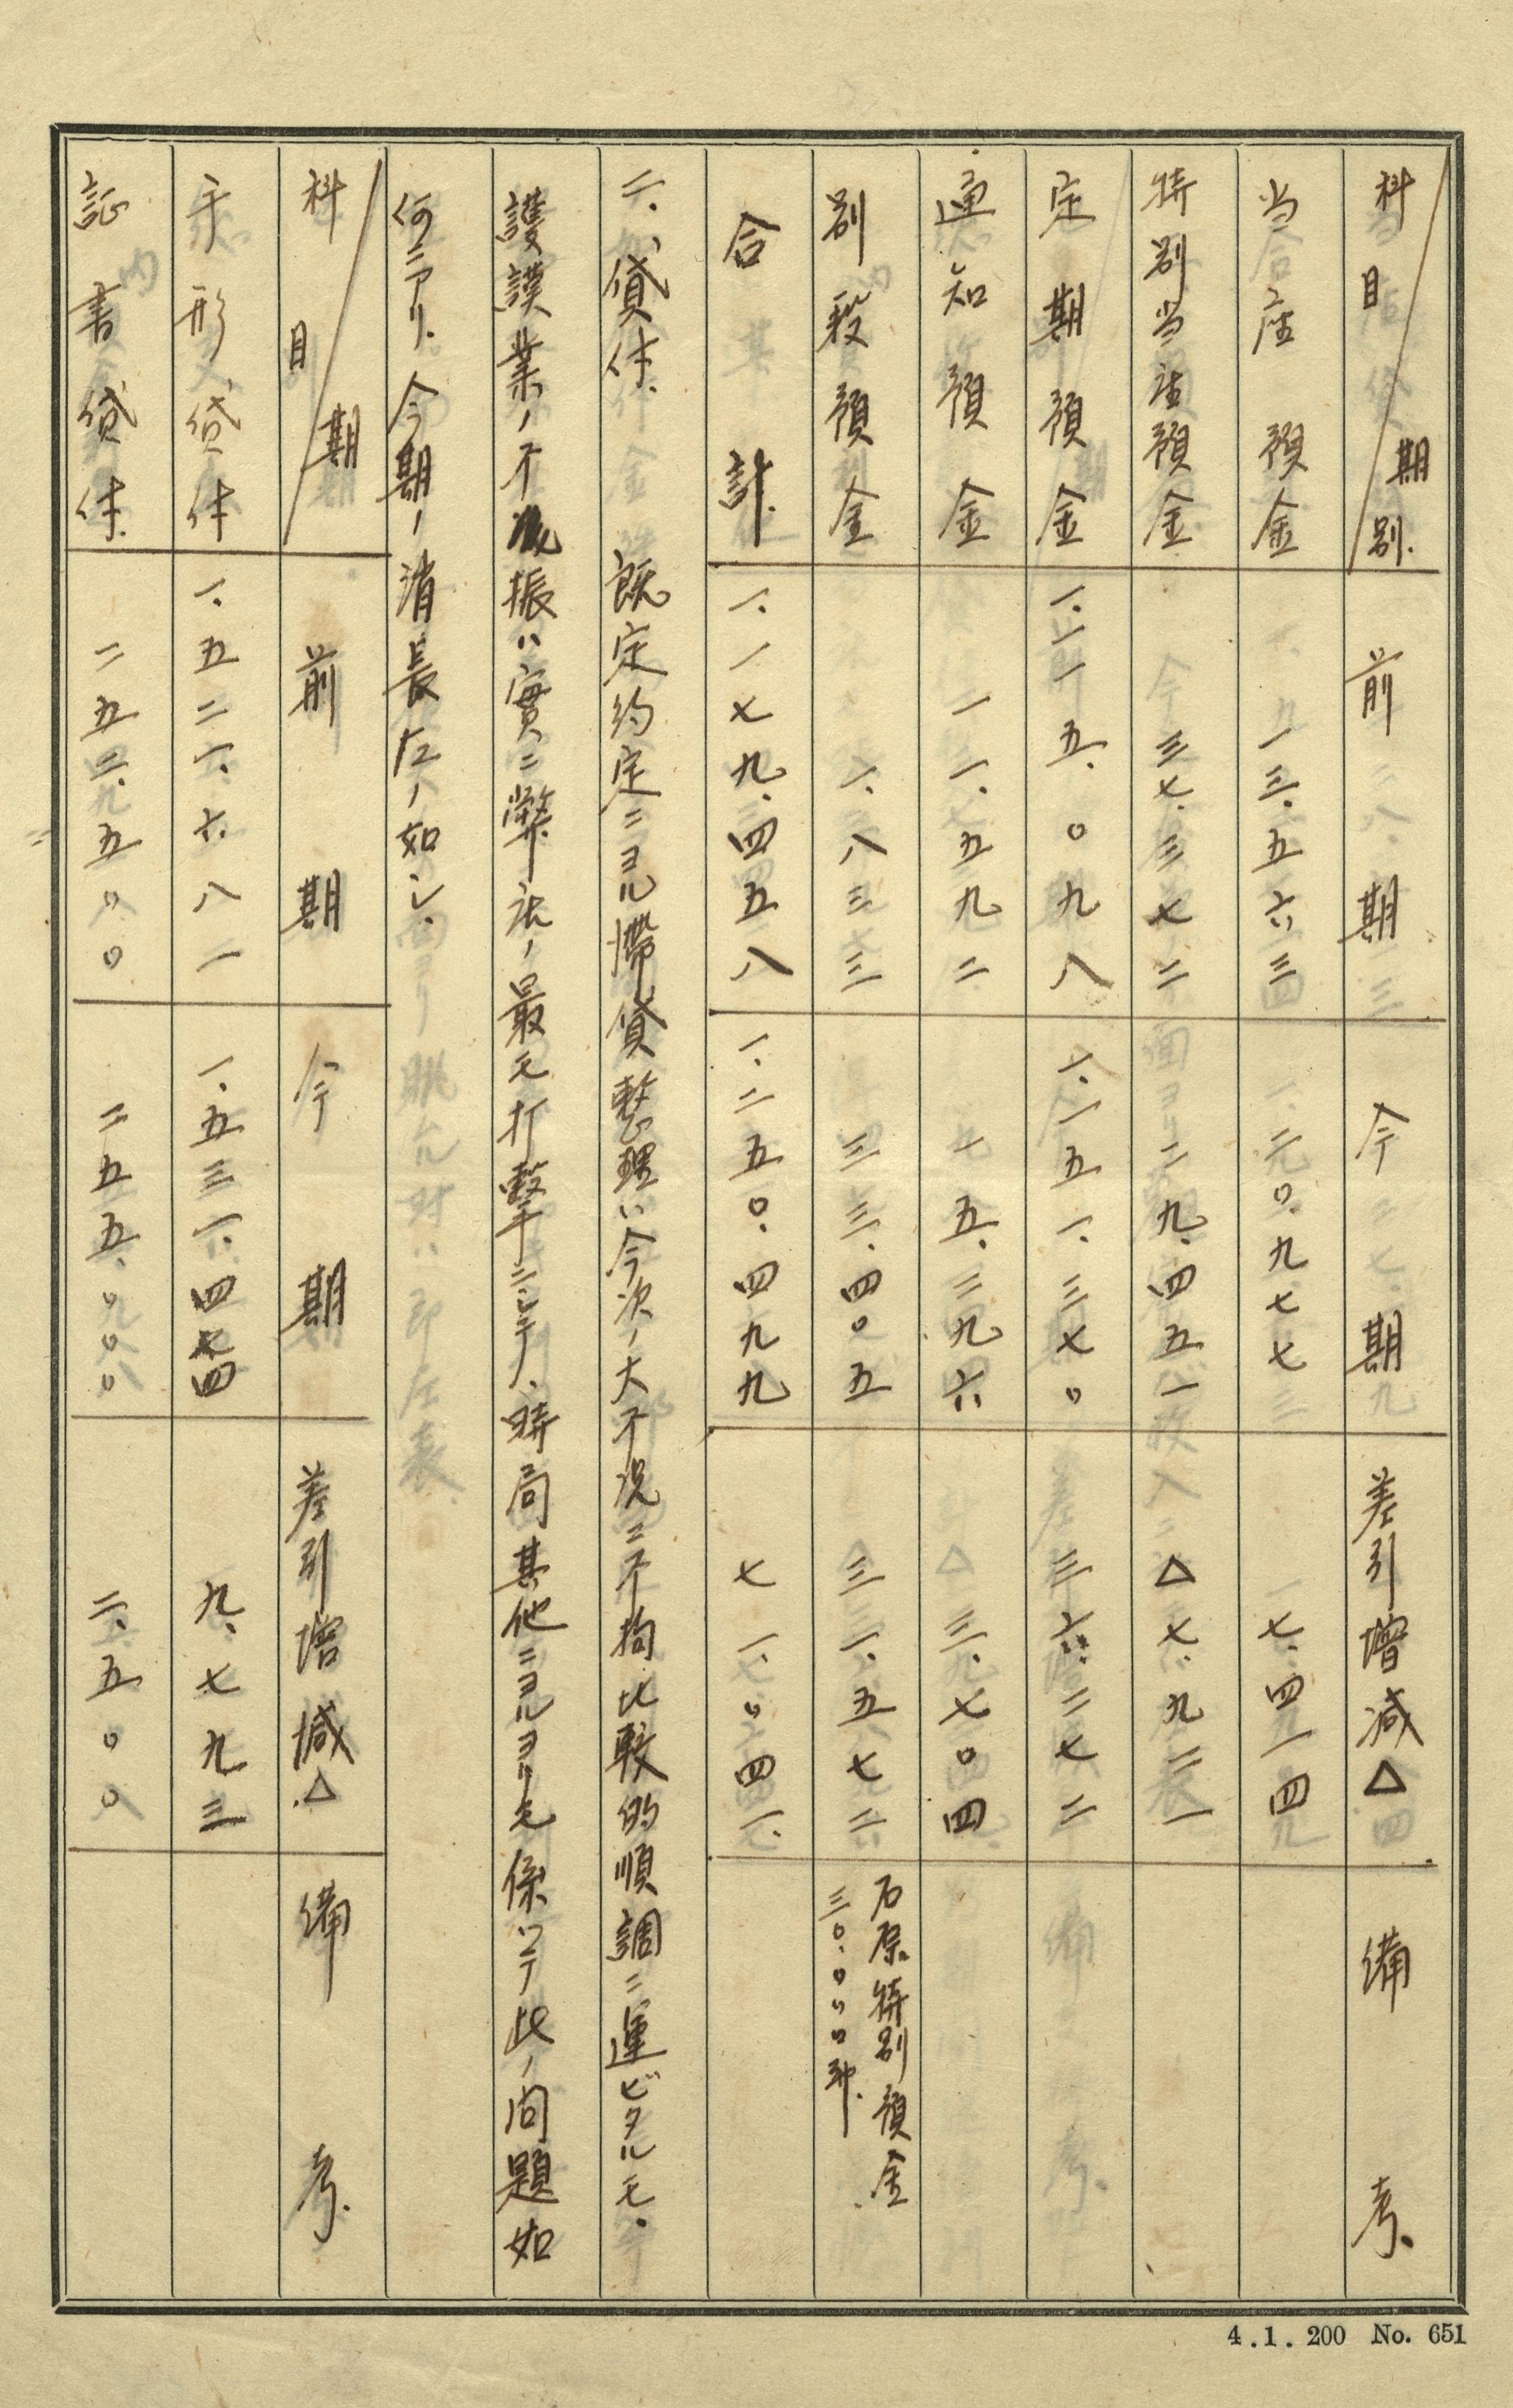 科目 期別. 前期 今期 差引増減△ 備考.
当座預金 一三.五六三 二〇.九七七 七.四一四
特別当座預金 三七.三七二 二九.四五一 △七.九二一
定期預金 一.一一五.〇九八 一.一五一.三七〇 三六.二七二
通知預金 一一.五九二 一五.二九六 三.七〇四
別段預金 一.八三三 三三.四〇五 三一.五七二 石原特別預金
三〇.〇〇〇
合計. 一.一七九.四五八 一.二五〇.四九九 七一.〇四一.
二、貸付. 既定約定ニヨル滞貸整理ハ今次ノ大不況ニ不拘比較的順調ニ運ビタルモ.
護謨業ノ不振ハ實ニ弊社ノ最モ打撃ニシテ、時局其他ニヨルヨリモ係ツテ此ノ問題如
何ニアリ.今期ノ消長左ノ如シ.
科目 期 前期 今期 差引増減△ 備考.
手形貸付 一.五二一.六八一 一.五三一.四七四 九.七九三
証書貸付. 二五二.五〇〇 二五五.〇〇〇 二.五〇〇
4.1.200 No. 651